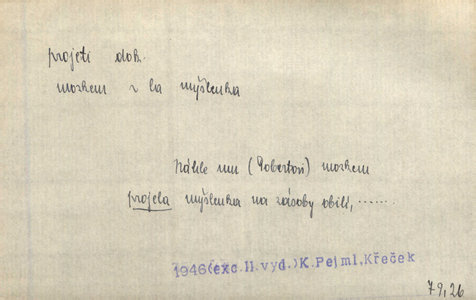 projeti dok.
mozkem myšlenka
Náhle mu (Gobertovi) mozkem
projela myšlenka na zásoby obilí, ......
1946(exc.II.vyd.)K.Pejml,Křeček
79,26